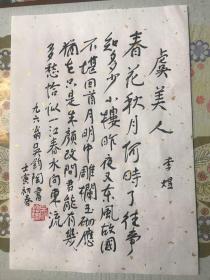 虞美人
李煜
春花秋月何時了往事
知多少小樓昨夜又東風故國
不堪回首月明中雕欄玉砌應
猶在只是朱顏改問君能有幾
多愁恰似一江春水向東流
九六翁吴鈞陶書
壬寅初春